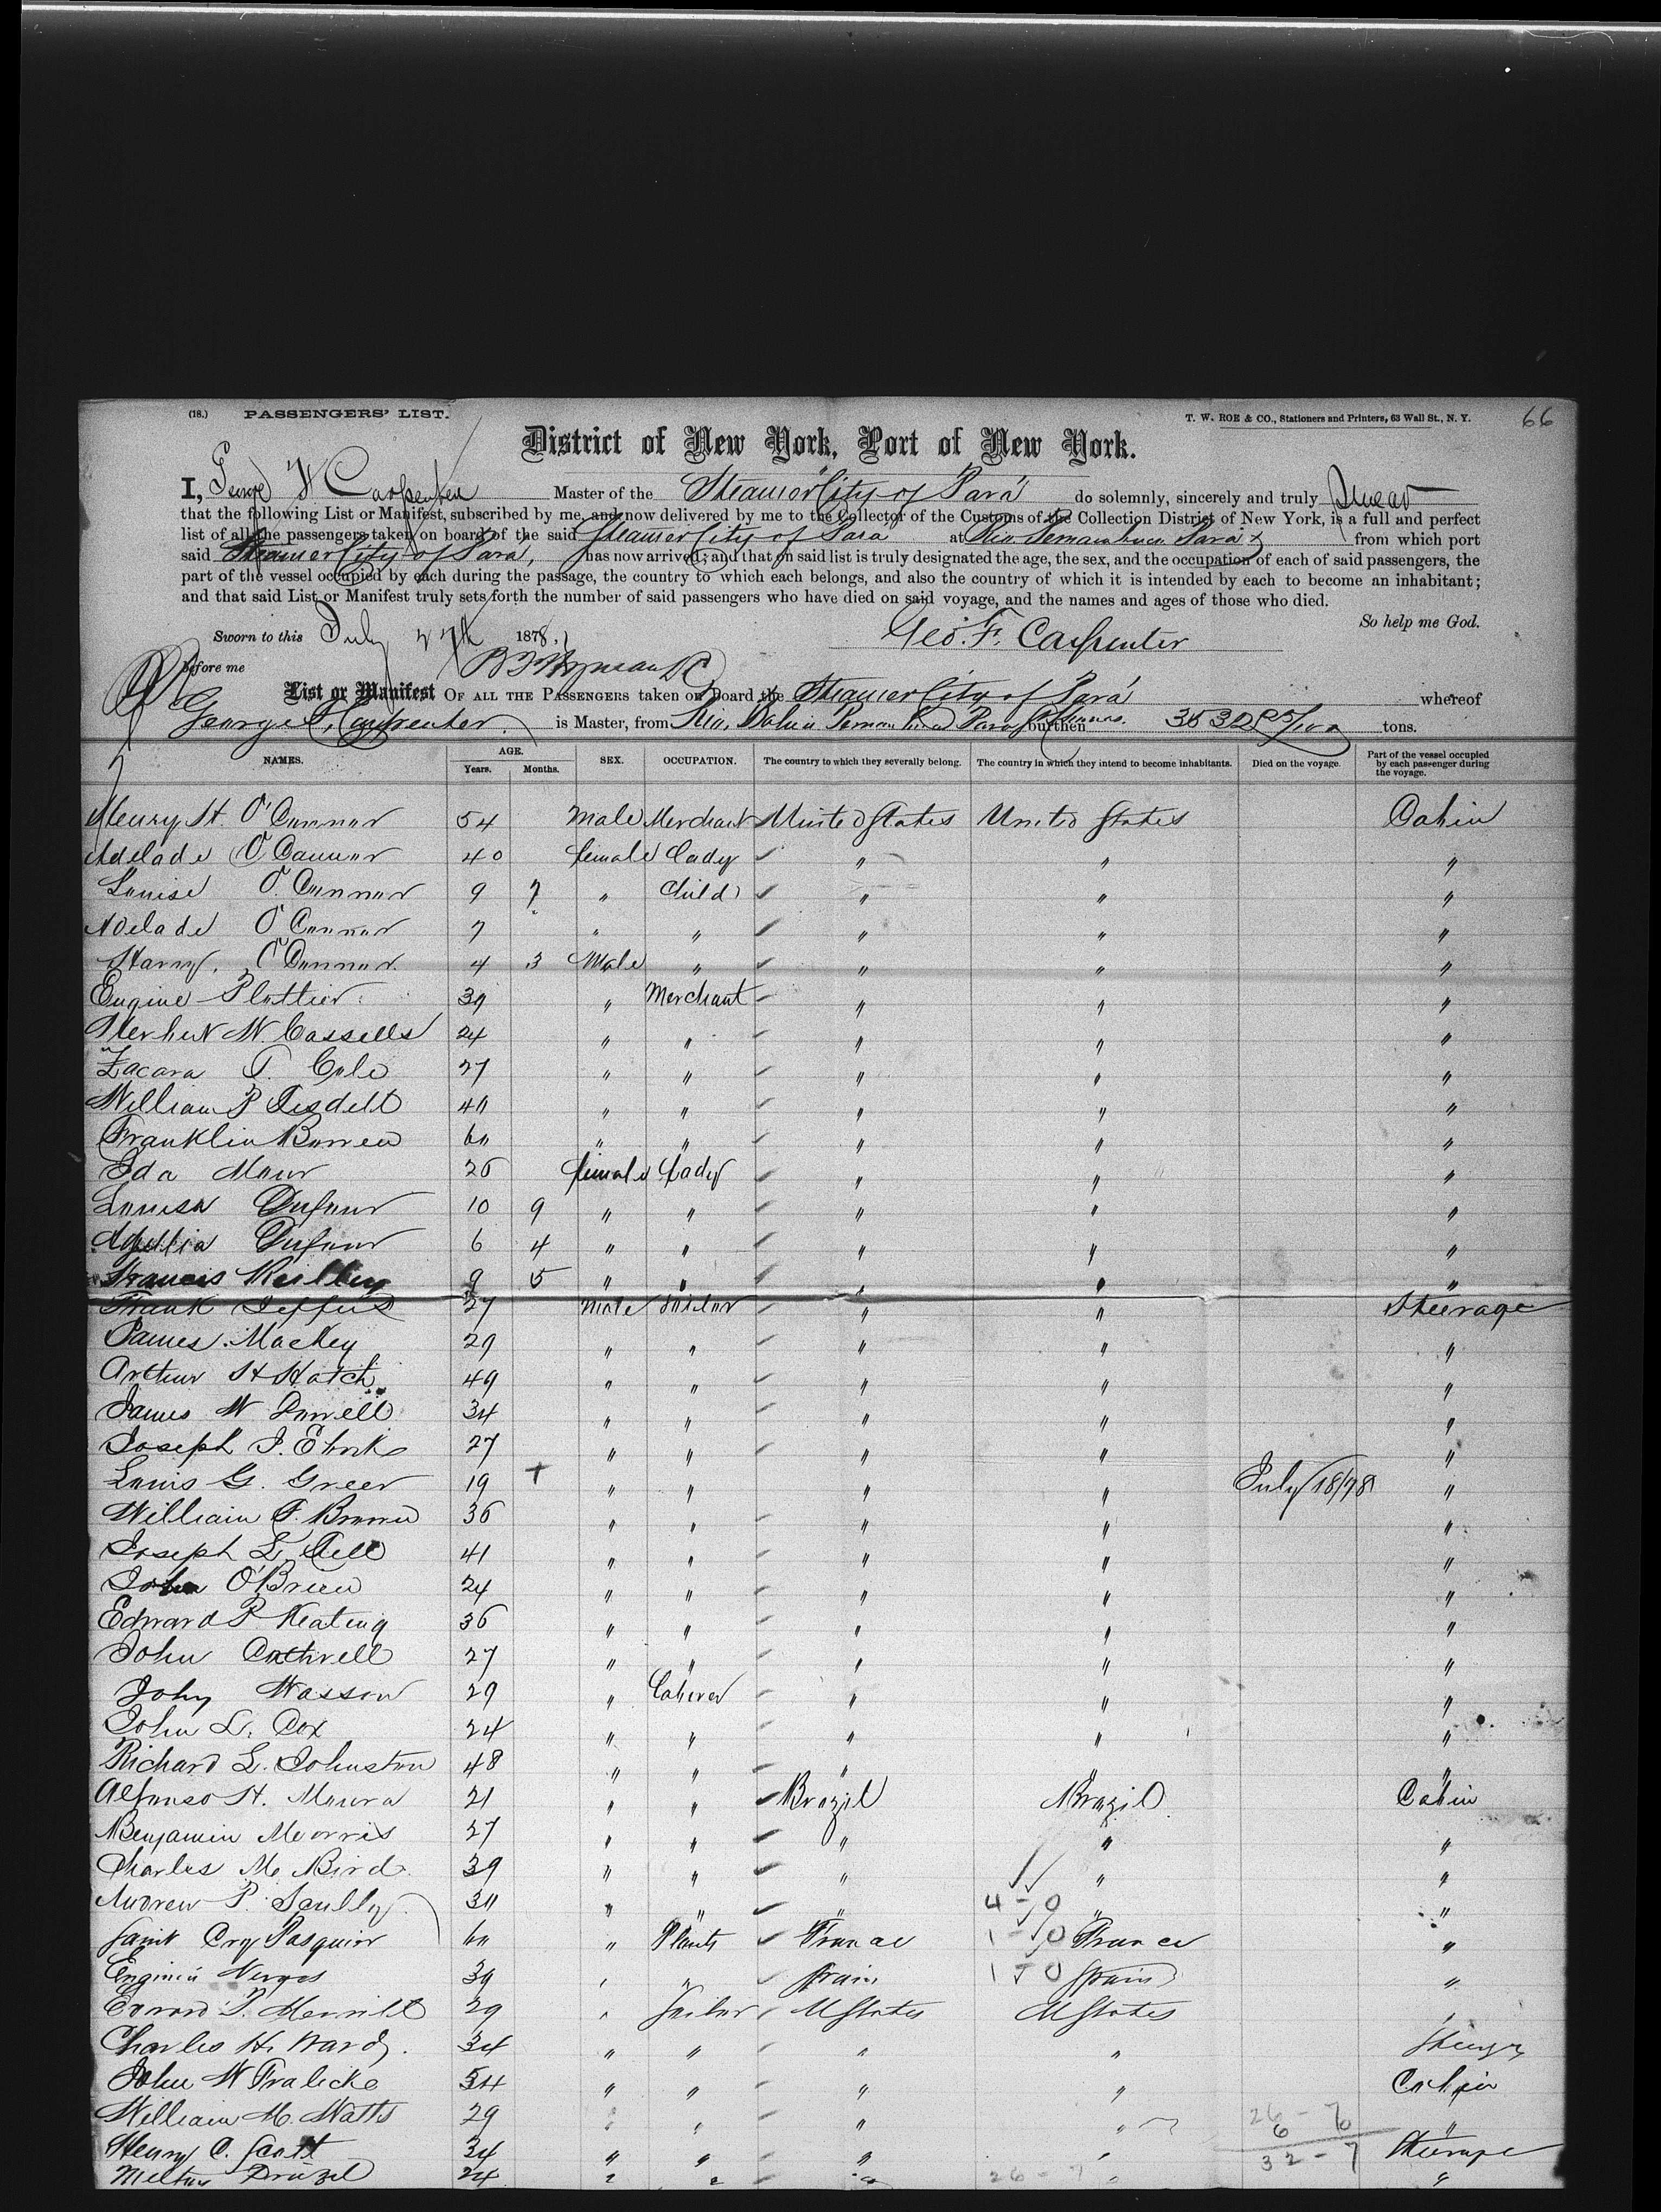 (18.) PASSENGERS' LIST. T. W. ROE & CO., Stationers and Printers, 63 Wall St., N. Y. 66
District of New York, Port of New York.
I, Carpenter Master of the Steamer City of Pará do solemnly, sincerely and truly swear
that the following List or Manifest, subscribed by me, and now delivered by me to the Collector of the Customs of the Collection District of New York, is a full and perfect
list of all the passengers taken on board of the said Steamer City of Para at Rio Pará from which port
said Steamer City of Pará, has now arrived; and that on said list is truly designated the age, the sex, and the occupation of each of said passengers, the
part of the vessel occupied by each during the passage, the country to which each belongs, and also the country of which it is intended by each to become an inhabitant;
and that said List or Manifest truly sets forth the number of said passengers who have died on said voyage, and the names and ages of those who died.
So help me God.
Sworn to this July 1878. Geo. F. Carpenter
before me
List or Manifest OF ALL THE PASSENGERS taken on board the Steamer City of Pará whereof
George F. Carpenter is Master, from Rio, Bahia Para burthen tons.
NAMES. AGE. Years. Months. SEX. OCCUPATION. The country to which they severally belong. The country in which they intend to become inhabitants. Died on the voyage. Part of the vessel occupied by each passenger during the voyage.
Henry H. O'Connor 54 Male Merchant United States United States Cabin
Adelade O'Connor 40 female Lady " " "
Louise O'Connor 9 7 " Child " " "
Adelade O'Connor 7 " " " " "
Harry O'Connor 4 3 Male " " " "
Eugine Plottier 39 " Merchant " " "
Herbert W. Cassells 24 " " " " "
Zacara T. Cole 27 " " " " "
William P Tisdell 40 " " " " "
Franklin 60 " " " " "
Ida 26 female Lady " " "
Louisa Dufour 10 9 " " " " "
Dufour 6 4 " " " " "
Francis Reilley 9 5 " " " " "
Frank Jeffers 27 Male Sailor " " Steerage
James Mackey 29 " " " " "
Arthur H Hatch 49 " " " " "
James W 34 " " " " "
Joseph J. 27 " " " " "
Louis G. Greer 19 + " " " " July 18/78 "
William F. Brown 36 " " " " "
Joseph L. 41 " " " " "
John O'Brien 24 " " " " "
Edward P Keating 36 " " " " "
John Cothrell 27 " " " " "
John Wasson 29 " Laborer " " "
John L. Cox 24 " " " " "
Richard L. Johnston 48 " " " " "
Alfonso H. Moura 21 " " Brazil Brazil Cabin
Benjamin Morris 27 " " " " "
Charles M. Bird 39 " " " " "
Andrew P. Scully 30 " " " 4-0 " "
Saint Cry Pasquier 60 " France 1-0 France "
39 " " Spain 1-0 Spain "
Edward P. Merrill 29 " Sailor U States U States "
Charles H. Ward 34 " " " " Steerage
John W Fralicke 54 " " " " Cabin
William M. Watts 29 " " " " "
Henry C. Scott 34 " " " " Steerage
24 " " " " "
26 - 7
6
32 - 7
26 - 7